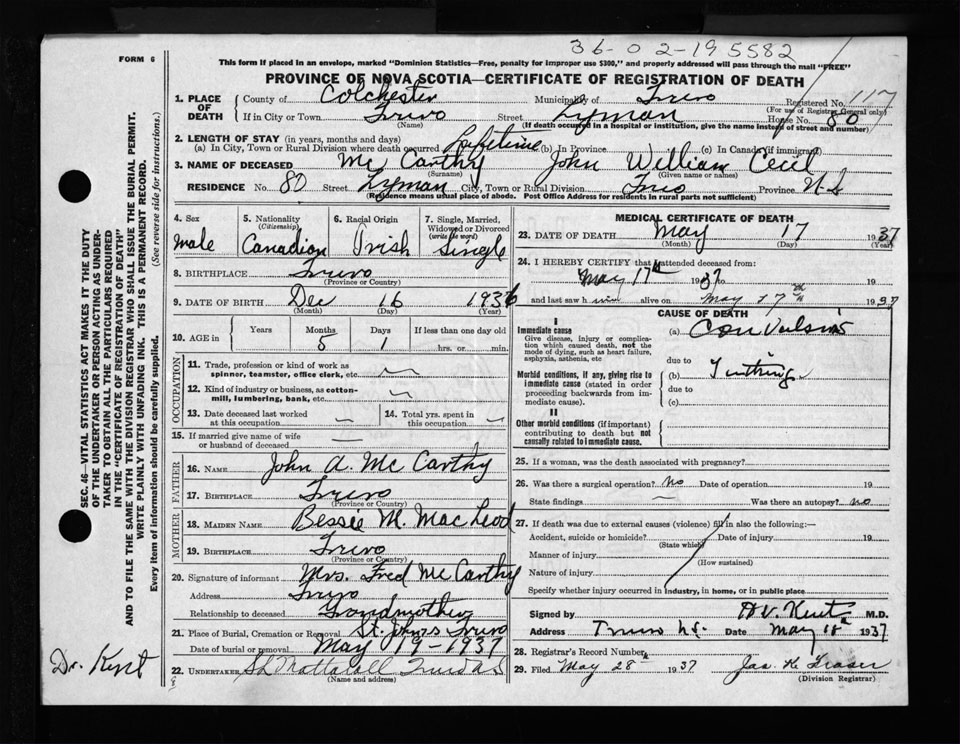 36-02-195582
FORM 6
This form if posted in an envelope, marked "Dominion Statistics—Free, penalty for improper use $300," and properly addressed will pass through the mail "FREE"
PROVINCE OF NOVA SCOTIA—CERTIFICATE OF REGISTRATION OF DEATH
1. PLACE OF DEATH County of Colchester Municipality of Truro Registered No. 1117
(For use of Registrar General only)
If in City or Town Truro Street Lyman House No. 80
(Name) (If death occurred in a hospital or institution, give the name instead of street and number)
2. LENGTH OF STAY (in years, months and days)
(a) In City, Town or Rural Division where death occurred Lifetime (b) In Province (c) In Canada (if immigrant)
3. NAME OF DECEASED Mc Carthy John William Cecil
(Surname) (Given name or names)
RESIDENCE No. 80 Street Lyman City, Town or Rural Division Truro Province N.S
(Residence means usual place of abode. Post Office Address for residents in rural parts not sufficient)
4. Sex male
5. Nationality (Citizenship) Canadian
6. Racial Origin Irish
7. Single, Married, Widowed or Divorced (write the word) Single
8. BIRTHPLACE Truro
(Province or Country)
9. DATE OF BIRTH Dec 16 1936
(Month) (Day) (Year)
10. AGE in Years Months 5 Days 1 If less than one day old hrs. or min.
OCCUPATION
11. Trade, profession or kind of work as spinner, teamster, office clerk, etc.
12. Kind of industry or business, as cotton-mill, lumbering, bank, etc.
13. Date deceased last worked at this occupation
14. Total yrs. spent in this occupation
15. If married give name of wife or husband of deceased
FATHER
16. NAME John A. Mc Carthy
17. BIRTHPLACE Truro
(Province or Country)
MOTHER
18. MAIDEN NAME Bessie M. MacLeod
19. BIRTHPLACE Truro
(Province or Country)
20. Signature of informant Mrs. Fred Mc Carthy
Address Truro
Relationship to deceased Grandmother
21. Place of Burial, Cremation or Removal St. Johns Truro
Date of burial or removal May 19-1937
22. UNDERTAKER Truro N S
(Name and address)
MEDICAL CERTIFICATE OF DEATH
23. DATE OF DEATH May 17 1937
(Month) (Day) (Year)
24. I HEREBY CERTIFY that I attended deceased from:
May 17th 1937 to 19
and last saw him alive on May 17th 1937
CAUSE OF DEATH
I
Immediate cause (a) Convulsions
Give disease, injury or complication which caused death, not the mode of dying, such as heart failure, asphyxia, asthenia, etc
due to
Morbid conditions, if any, giving rise to immediate cause (stated in order proceeding backwards from immediate cause). (b)
due to
(c)
II
Other morbid conditions (if important) contributing to death but not causally related to immediate cause.
25. If a woman, was the death associated with pregnancy?
26. Was there a surgical operation? no Date of operation 19
State findings Was there an autopsy? no
27. If death was due to external causes (violence) fill in also the following:
Accident, suicide or homicide? Date of injury 19
(State which)
Manner of injury
(How sustained)
Nature of injury
Specify whether injury occurred in industry, in home, or in public place
Signed by H V. Kent M.D.
Address Truro N.S. Date May 18 1937
28. Registrar's Record Number
29. Filed May 28 1937 Jas. K. Fraser
(Division Registrar)
SEC. 46—VITAL STATISTICS ACT MAKES IT THE DUTY OF THE UNDERTAKER OR PERSON ACTING AS UNDERTAKER TO OBTAIN ALL THE PARTICULARS REQUIRED IN THE "CERTIFICATE OF REGISTRATION OF DEATH"
AND TO FILE THE SAME WITH THE DIVISION REGISTRAR WHO SHALL ISSUE THE BURIAL PERMIT.
WRITE PLAINLY WITH UNFADING INK. THIS IS A PERMANENT RECORD.
Every item of information should be carefully supplied. (See reverse side for instructions.)
Dr. Kent